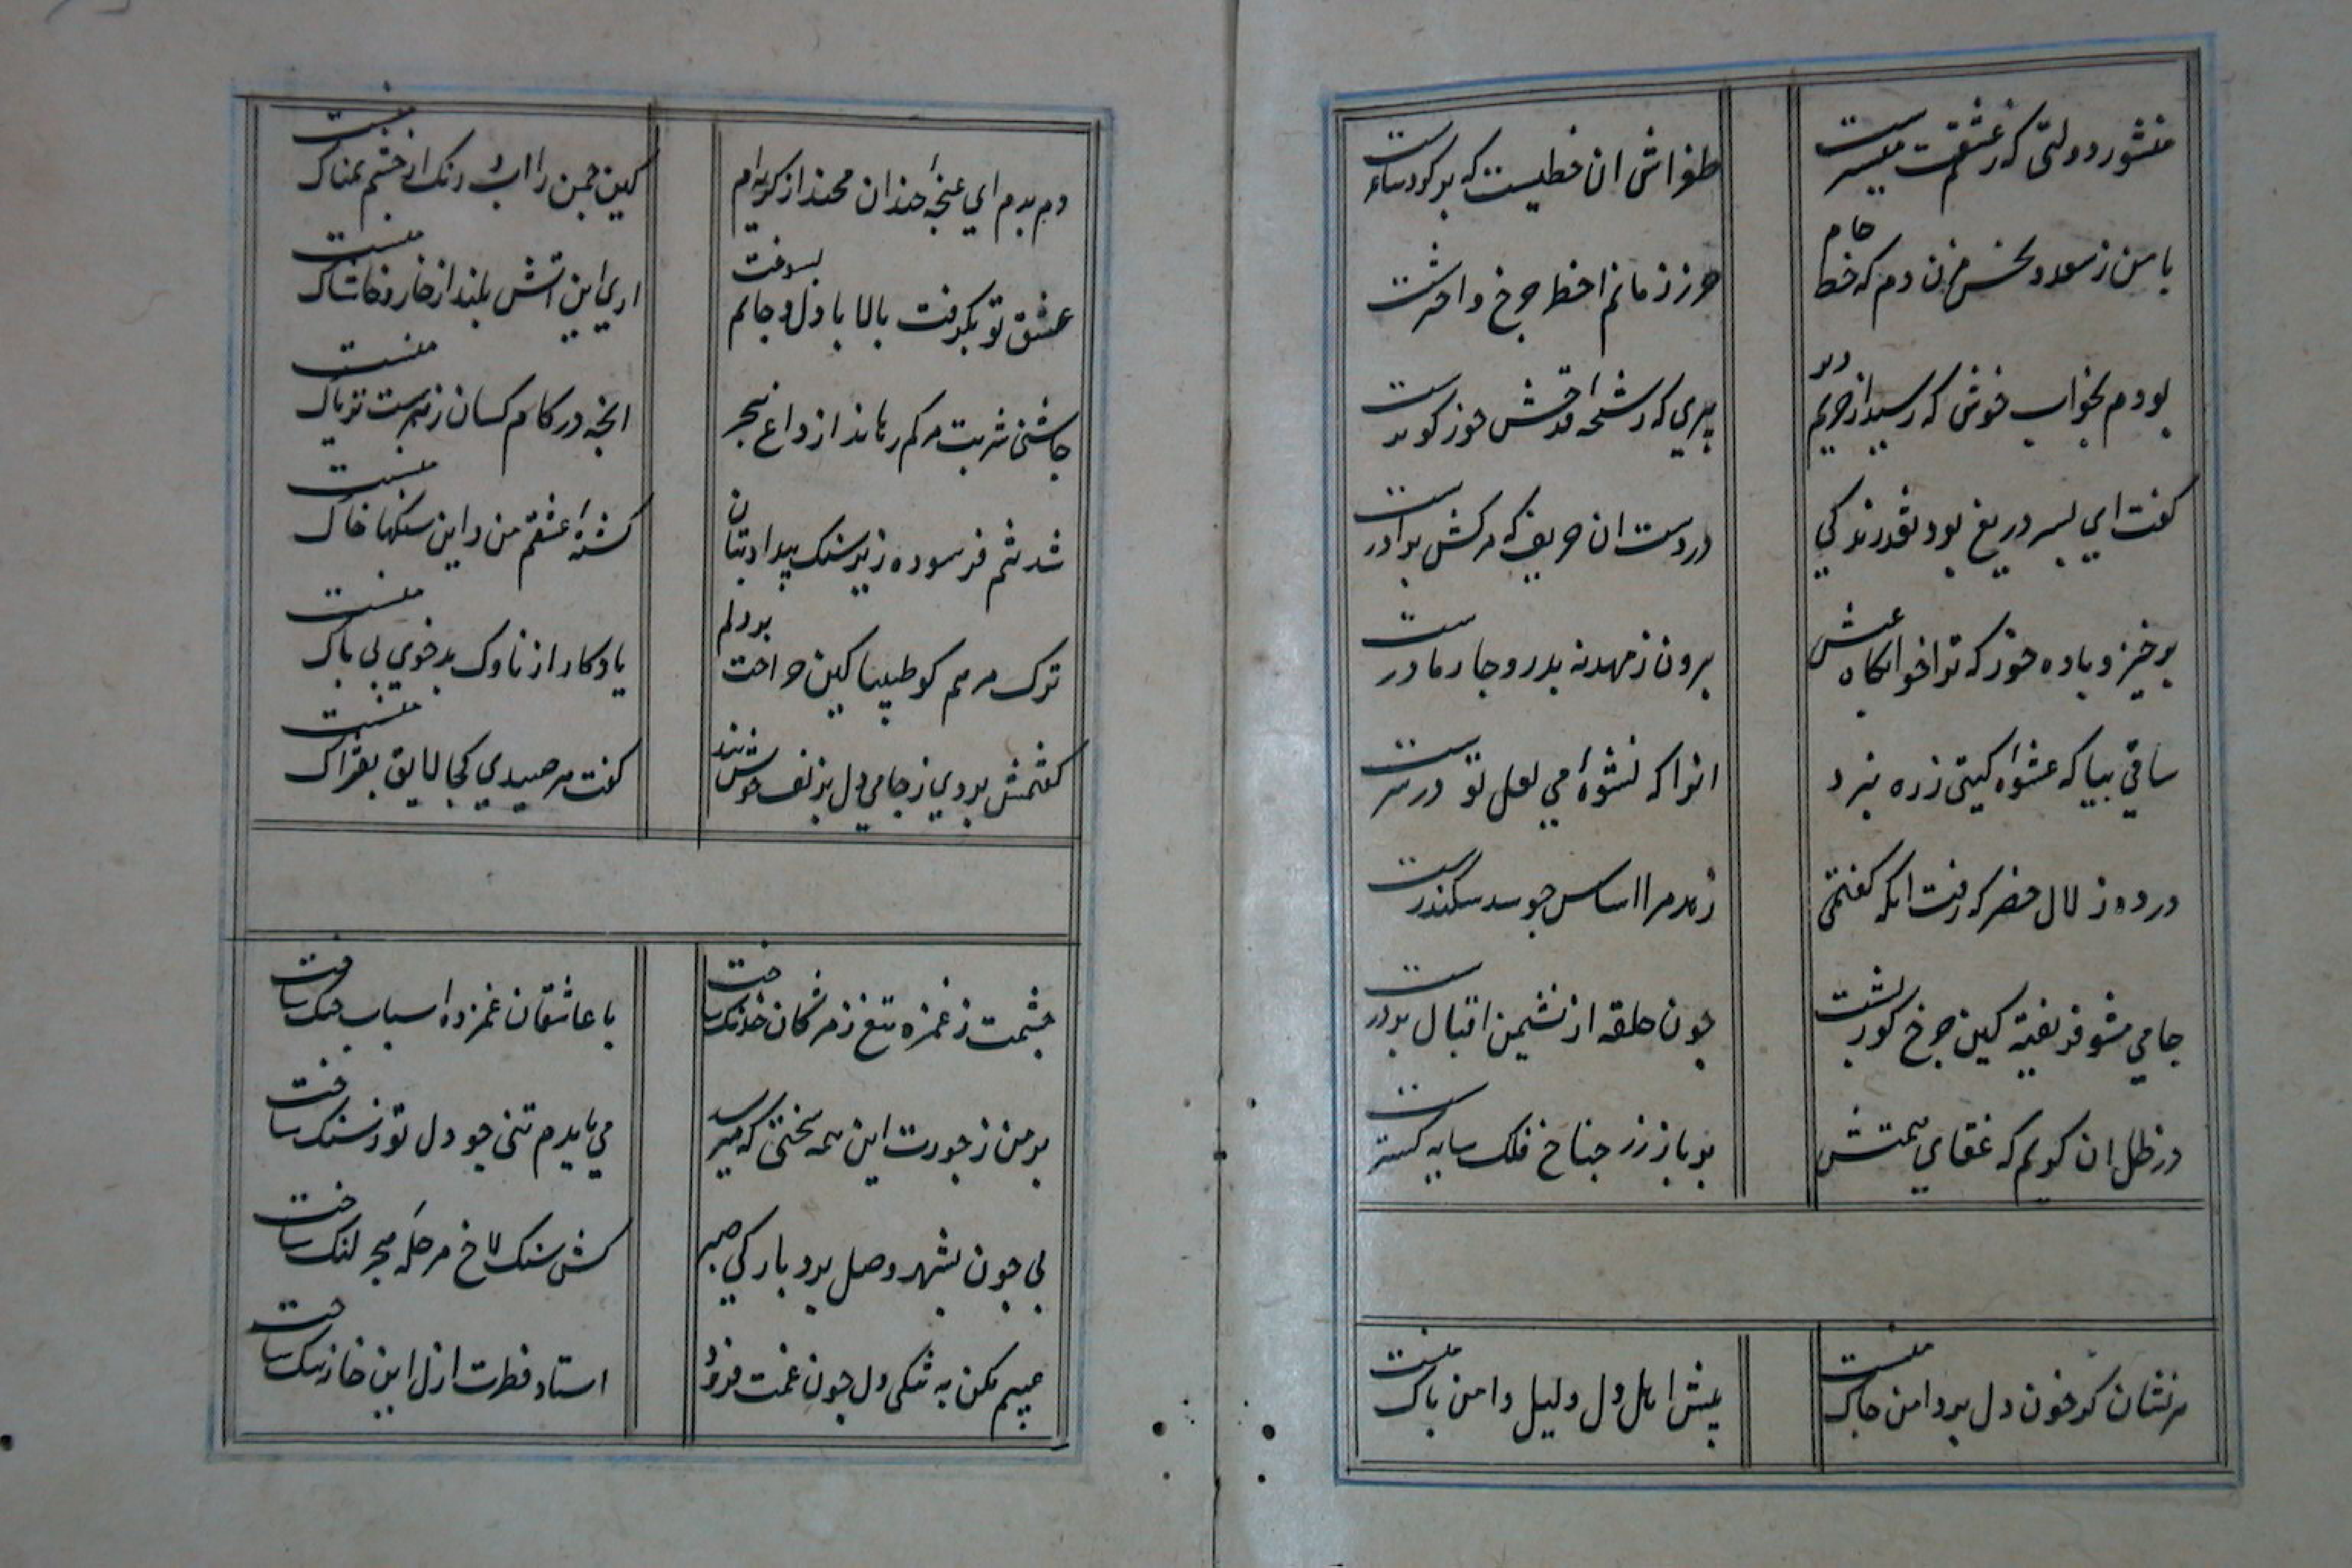 منشور دولتی که ز عشقت میسرست
طغراش ان خطیست که بر کرد ساغرست
با من ز سعد و نحس مزن دم که خط جام
حرز زمانم از خط چرخ و اخترست
بودم بخواب خوش که رسید از حریم دیر
پیری که رشحه قدحش حوز کوثرست
کفت ای پسر دریغ بود نقد زندکی
در دست ان حریف که مرکش برادرست
برخیز و باده خور که ترا خوابکاه عیش
برون ز مهد نه پدر و چار مادرست
ساقی بیا که عشوه کیتی ز ره نبرد
انرا که نشوه می لعل تو در سرست
در ده زلال خضر که رفت انکه کفتمی
زهد مرا اساس چو سد سکندرست
جامی مشو فریفته کین چرخ کوژپشت
چون حلقه از نشیمن اقبال بر درست
در ظل ان کریم که عنقای همتش
بر باز زر جناح فلک سایه کسترست
هر نشان کز خون دل بر دامن چاک منست
پیش اهل دل دلیل دامن پاک منست
دم بدم ای غنچه خندان مخند از کریه‌ام
کین چمن را اب و رنک از چشم نمناک منست
عشق تو بکرفت بالا با دل و جانم بسوخت
اری این اتش بلند از خار و خاشاک منست
چاشنی شربت مرکم رهاند از داغ هجر
انچه در کام کسان زهرست تریاک منست
شد تنم فرسوده زیر سنک بیداد بتان
کشته عشقم من و این سنکها خاک منست
ترک مرهم کو طبیبا کین جراحت بر دلم
یادکار از ناوک بدخوی بی باک منست
کفتمش بردی ز جامی دل بزلف خوش ببند
کفت هر صیدی کجا لایق بفتراک منست
چشمت ز غمزه تیغ ز مژکان خدنک ساخت
با عاشقان غمزده اسباب جنک ساخت
بر من ز جورت این همه سختی که میرسد
می بایدم تنی چو دل تو ز سنک ساخت
بی چون بشهر وصل برد بارکی صبر
کش سنک لاخ مرحله هجر لنک ساخت
عیبم مکن به تنکی دل چون غمت فزود
استاد فطرت ازل این خانه تنک ساخت